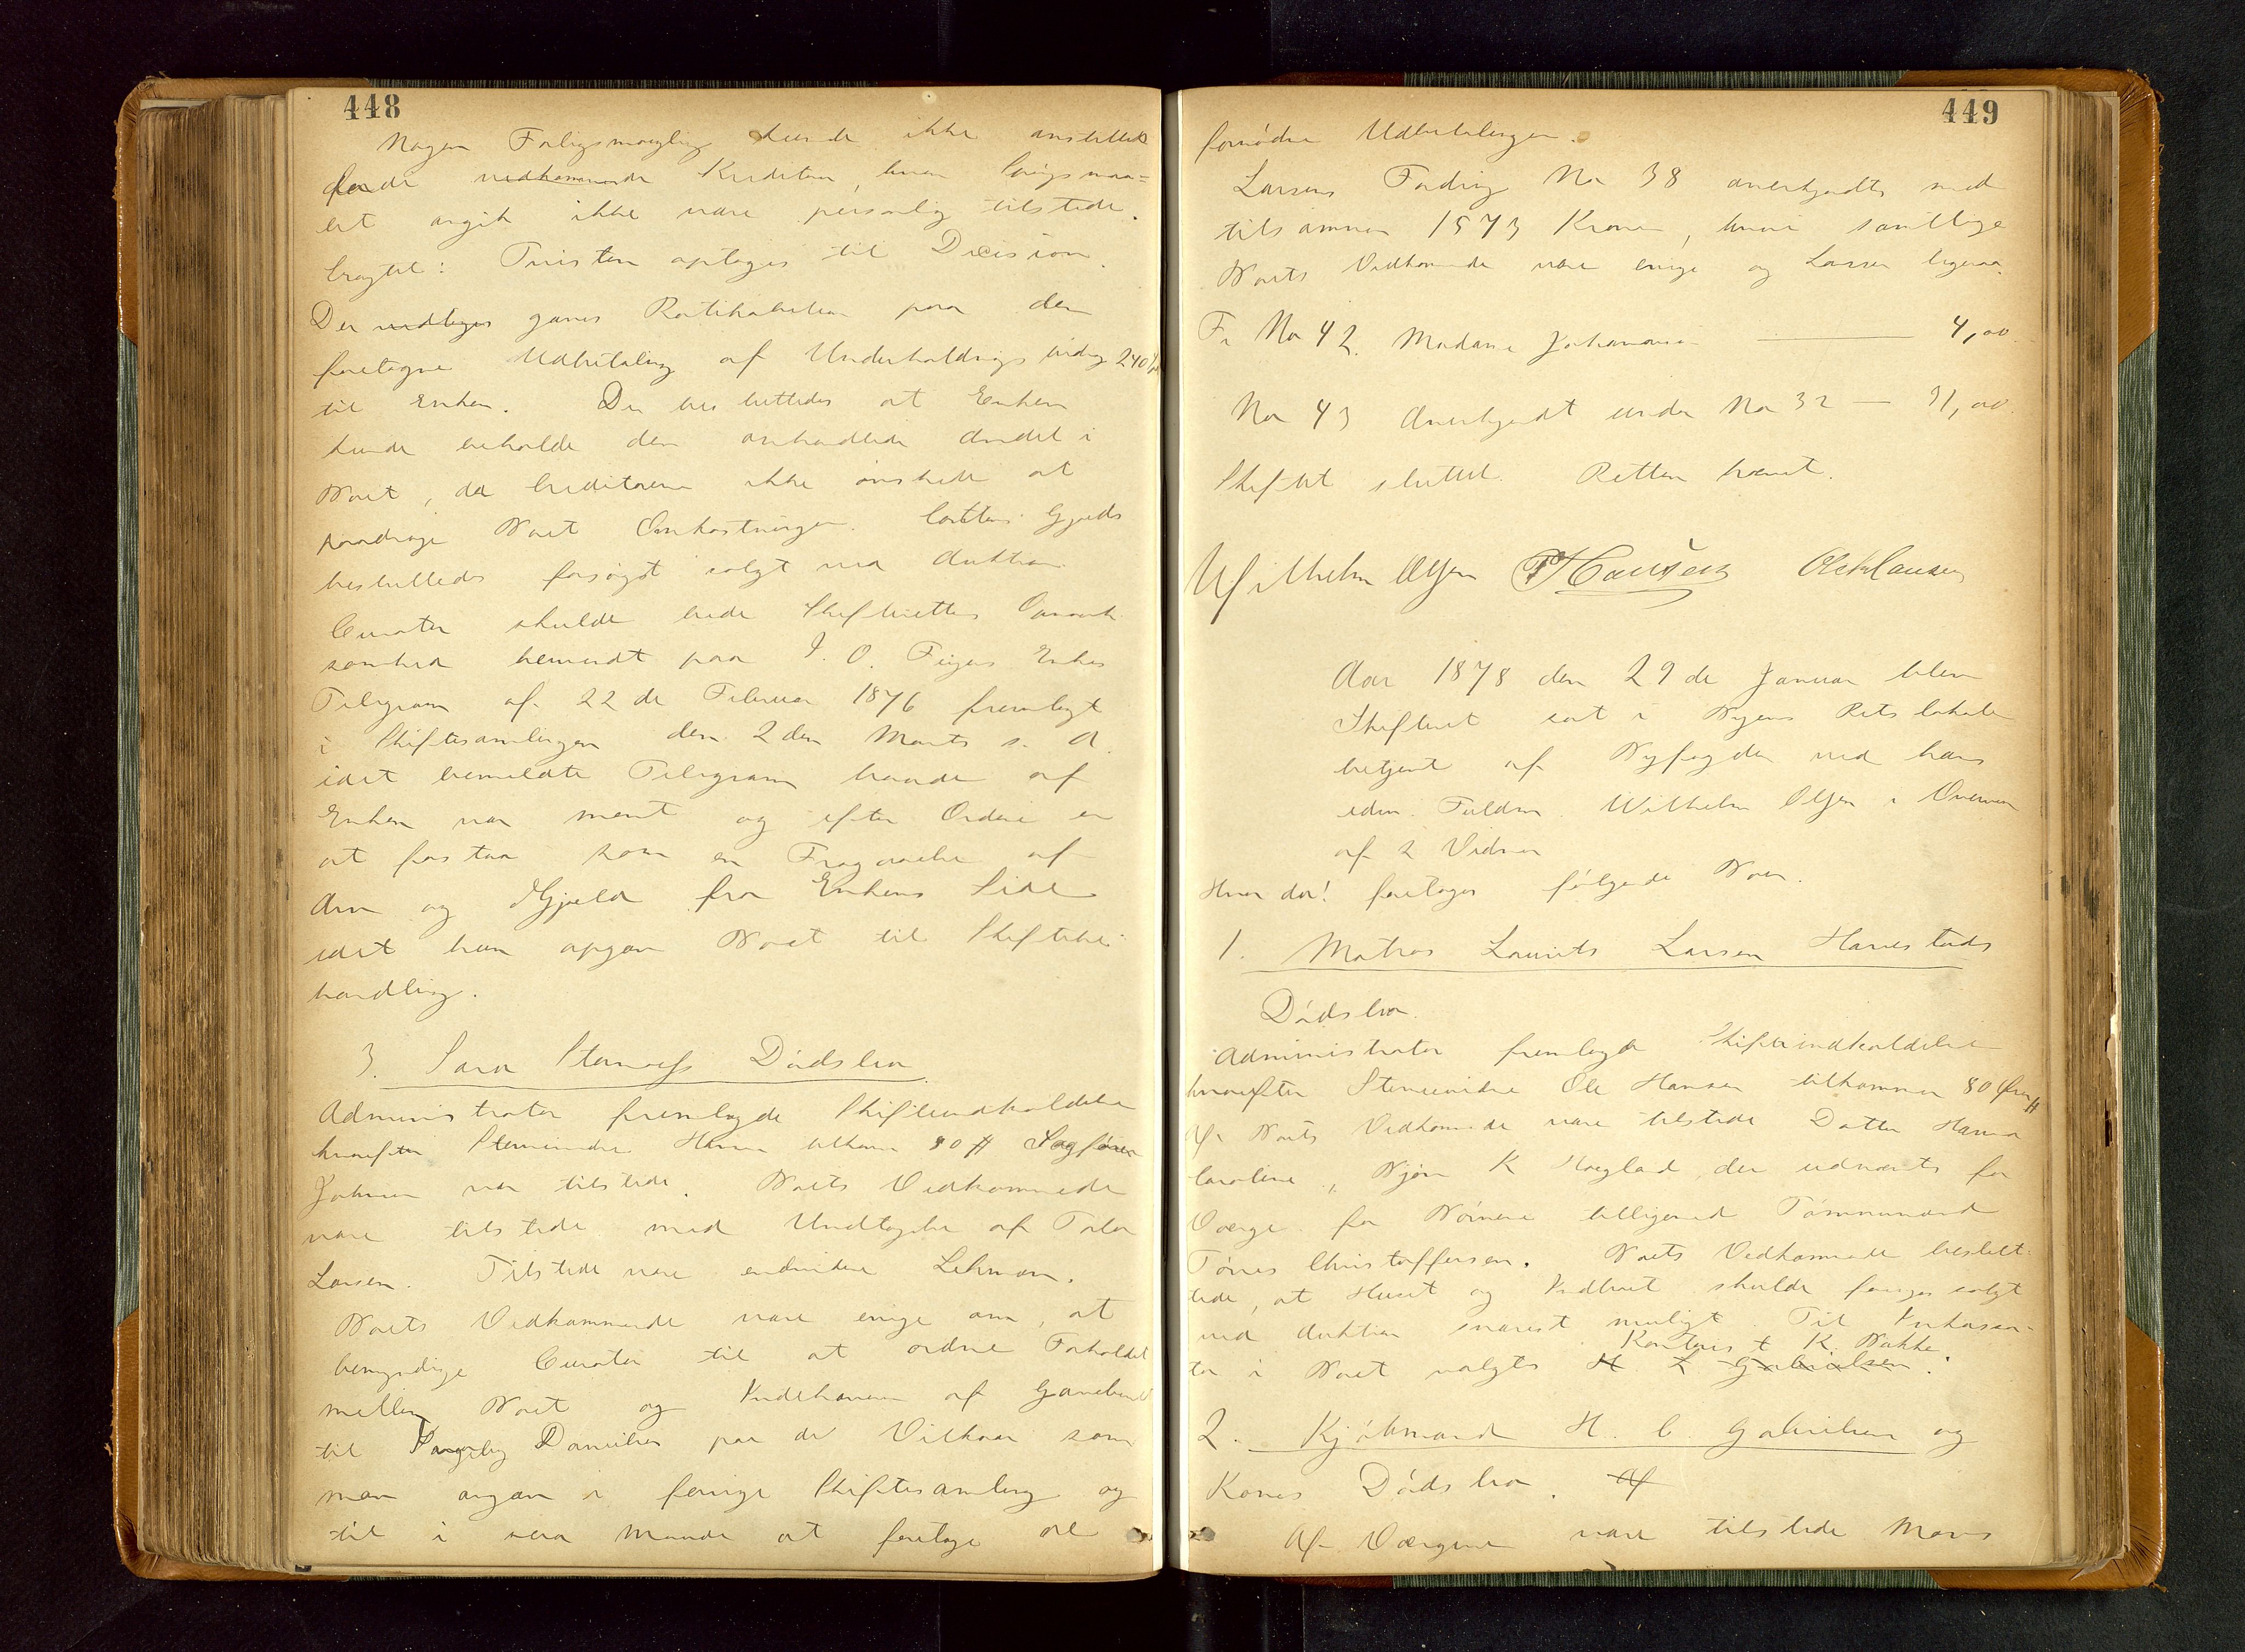 448
Nogen Forligsmægling kunde ikke anstilles
da de vedkommende Kreditorer, hvem
ei angik ikke vare personlig tilstede.
Tvisten optages til Decision.
Der vedtoges gaves Ratihabition paa den
foretagne Udbetaling af Underholdnings 240
til Enken. Der besluttedes at Enken
kunde beholde den omhandlede Andel i
Boet, da Creditorerne ikke ønskede at
paadrage Boet Omkostninger.
besluttedes forsøgt solgt ved Auktion.
Curator skulde bede Skifterettens Opmærk
somhed henvendt paa I. O. Enkes
Telegram af 22de Februar 1876 fremlagt
i Skiftesamlingen den 2den Marts s. A.
idet bemeldte Telegram baade af
Enken var ment og efter Ordene er
at forstaa som en Fragaaelse af
Arv og Gjæld fra Enkens Side
idet hun opgav Boet til Skiftebe-
handling.
3. Sara Dødsbo
Administrator fremlagde Skifteindkaldelse
hvorefter Stemmevidne Hansen tilkom 80 ß Sagfører
Johnsen var tilstede. Boets Vedkommende
vare tilstede med Undtagelse af
Larsen. Tilstede vare endvidere Lehman.
Boets Vedkommende vare enige om, at
bemyndige Curator til at ordne Forholdet
mellem Boet og Indehaveren af Gavebrevet
til Danielsen paa de Vilkaar som
man angav i forrige Skiftesamling og
til i saa Maade at foretage de
449
fornødne Udbetalinger.
Larsens Fordring No 38 anerkjendtes med
tilsammen 1573 Kroner, hvori samtlige
Boets Vedkommende vare enige og Larsen ligesaa.
F. No 42. Madame Johannesen — 4,00
No 43 Anerkjendt under No 32 — 31,00.
Skiftet sluttet. Retten hævet.
Wilhelm Olsen PHansen OleHansen
Aar 1878 den 29de Januar blev
Skifteret sat i Byens Retslokale
betjent af Byfogden ved hans
edsv. Fuldm. Wilhelm Olsen i Overvær
af 2 Vidner
Hvor da! foretoges følgende Boer.
1. Matros Laurits Larsen Hanestads
Dødsbo.
Administrator fremlagde Skifteindkaldelse
hvorefter Stemmevidne Ole Hansen tilkommer 80 Øre
Af Boets Vedkommende vare tilstede Datter Hanna
Caroline, Bjørn K Høyland, der udnævntes for
Værge for Børnene tilligemed Tømmermand
Tønnes Christoffersen. Boets Vedkommende beslut-
tede, at Huset og Indboet skulde søges solgt
ved Auktion snarest muligt. Til Inkassa-
Kontorist K. Bakke
tor i Boet valgtes H. L. Gabrielsen.
2. Kjøbmand H. C. Gabrielsen og
Kones Dødsbo. Af
Af Værgerne vare tilstede Mons